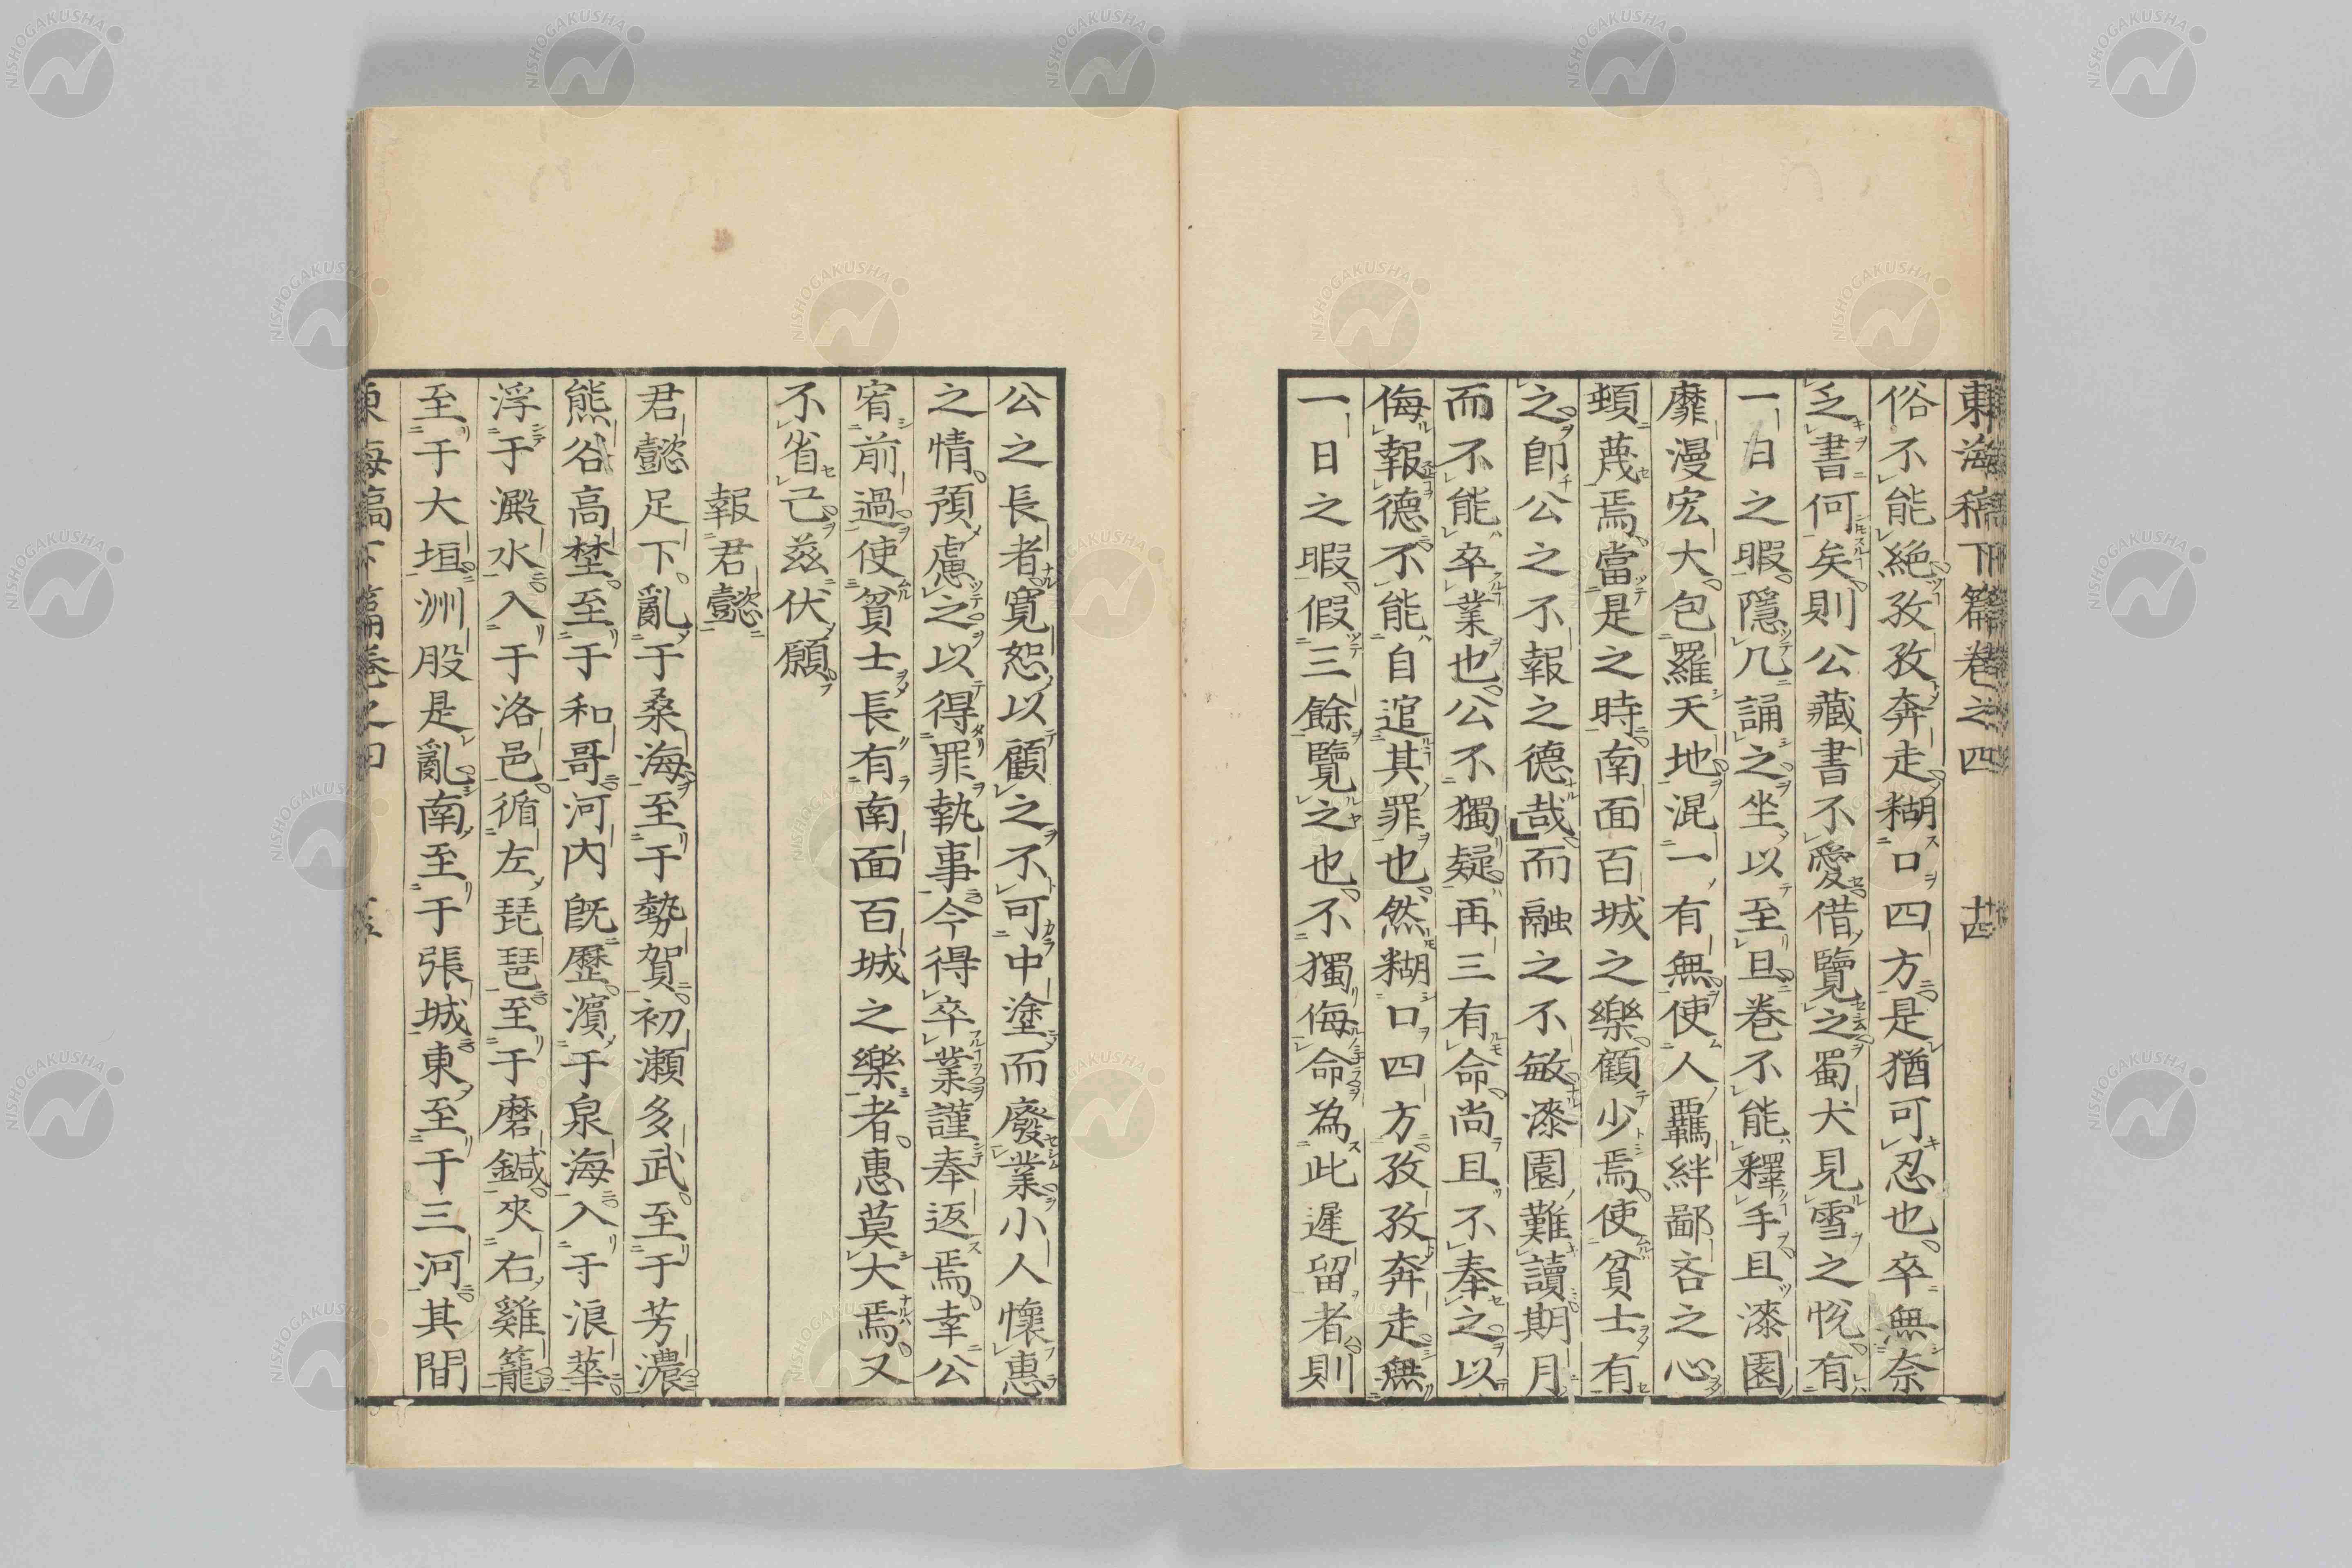 東海稿下篇卷之四 十四
俗不能絕孜孜奔走糊口四方是猶可忍也卒無奈
乏書何矣則公藏書不愛借覽之蜀犬見雪之悅有
一日之暇隱几誦之坐以至旦卷不能釋手且漆園
靡漫宏大包羅天地混一有無使人羈絆鄙吝之心
頓蔑焉當是之時南面百城之樂顧少焉使貧士有
之即公之不報之德哉而融之不敏漆園難讀期月
而不能卒業也公不獨疑再三有命尚且不奉之以
侮報德不能自逭其罪也然糊口四方孜孜奔走無
一日之暇假三餘覽之也不獨侮命為此遲留者則
公之長者寬恕以顧之不可中塗而廢業小人懷惠
之情預慮之以得罪執事今得卒業謹奉返焉幸公
宥前過使貧士長有南面百城之樂者惠莫大焉又
不省己茲伏願
報君懿
君懿足下亂于桑海至于勢賀初瀬多武至于芳濃
熊谷高埜至于和哥河內既歷濱于泉海入于浪華
浮于澱水入于洛邑循左琵琶至于磨鍼夾右雞籠
至于大垣洲股是亂南至于張城東至于三河其間
東海稿下篇卷之四
NISHOGAKUSHA